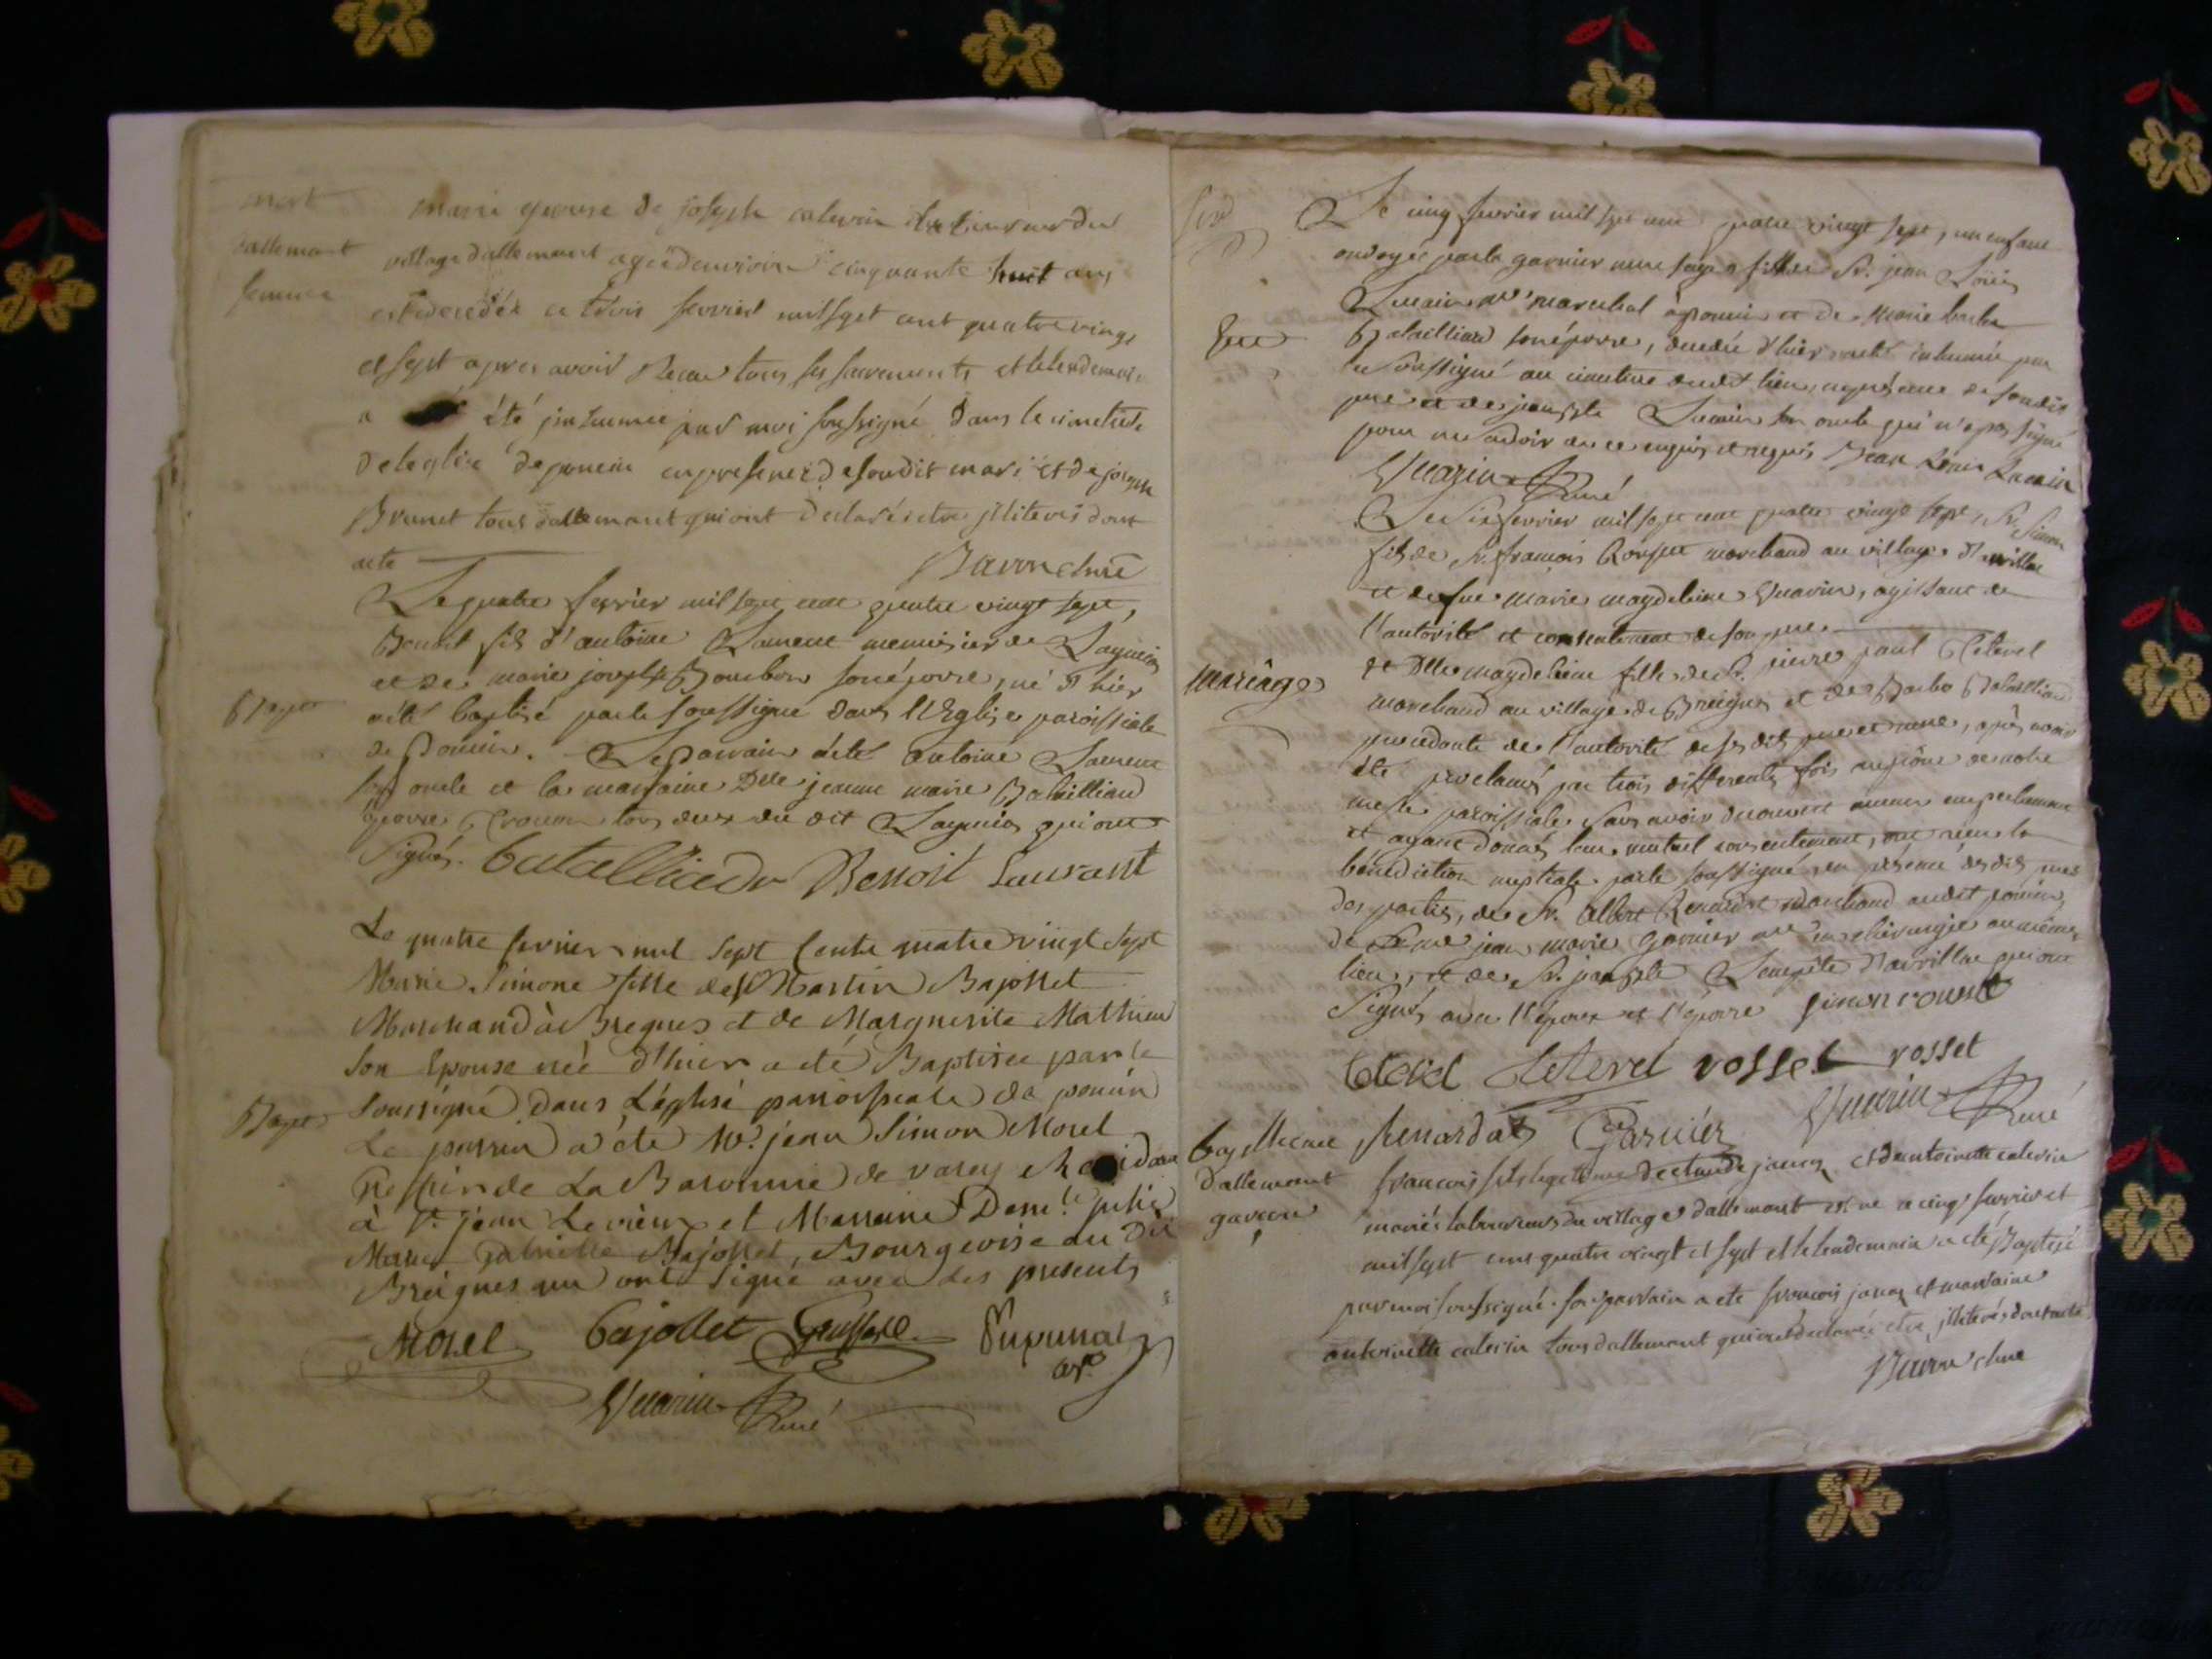 mort
dallemant
femme
marie epouse de joseph calevrin du
village dallemant agée denviron cinquante huit ans
est décédée ce trois fevrier mil sept cent quatre vingt
et sept apres avoir Recue tous ses sacrements et le lendemain
a été inhumée par moi soussigné dans le cimetiere
de leglise de poncin en presence de son dit mari et de joseph
Brunet tous dallemant qui ont declarés etre illiterés dont
acte
Le quatre fevrier mil sept cent quatre vingt sept,
Benoit fils d'antoine Laurent menuisier de Lagnieu
et de marie josephte Bourbon son épouse, né d'hier
Bapt
a été baptisé par le soussigné dans l'Eglise paroissiale
de Poncin. Le Parrain a été antoine Laurent
son oncle et la marraine Dlle jeanne marie Bataillard
epouse tous deux du dit Lagnieu qui ont
signés. Bataillard Benoit Laurant
Le quatre fevrier mil sept Cents quatre vingt sept
Marie Simone fille de Sr Martin Bajollet
Marchand à Bregnes et de Marguerite Mathieu
son Epouse née d'hier a été Baptisée par le
Bapt
soussigné dans L'église parroissiale de poncin
Le parrin a été Mr. jean Simon Morel
Greffier de La Baronnie de varey
à St. jean Levieux et Marraine Demlle julie
Marie Gabrielle Bajollet, Bourgeoise du dit
Breignes qui ont signé avec les presents
Morel Bajollet
Guarin Curé
Le cinq fevrier mil sept cent quatre vingt sept, un enfant
ondoyé par la garnier mere sage fille de Sr. jean Louis
Lucain me marechal à poncin et de marie barbe
Bataillard son épouse, decedée d'hier a été inhumée par
le soussigné au cimetiere dudit lieu, en présence de son dit
pere et de josephte Lucain son oncle qui n'a pas signé
pour ne savoir de ce enquis et requis Jean Louis Lucain
Guarin Curé
Le six fevrier mil sept cent quatre vingt sept, Sr. Simon
fils de Sr. françois Rousset marchand au village d'
et de feue marie magdeleine Guarin, agissant de
l'autorité et consentement de son pere
mariâge
et Dlle magdeleine fille de Sr. pierre paul Cleterel
marchand au village de Breignes et de Barbe Bataillard
procedante de l'autorité de ses dits pere et mere, après avoir
été proclamés par trois differentes fois au prône de notre
messe paroissiale sans avoir decouvert aucun empechement
et ayant donnés leur mutuel consentement, ont reçu la
bénédiction nuptiale par le soussigné, en présence des dits peres
des parties, de Sr. albert Renardat marchand audit poncin,
de Sieur jean marie garnier me en chirurgie au même
lieu, et de Sr. josephte qui ont
signés avec l'epoux et l'épouse simon rousset
rosset rosset
Renardat Garnier Guarin Curé
dallemant
garcon
francois fils legitime de claude janez et dantoinette calevrin
mariés laboureurs du village dallemant est né ce cinq fevrier
mil sept cent quatre vingt et sept et le lendemain a été Baptisé
par moi soussigné. son parrain a ete francois janez et marraine
antoinette calevrin tous dallemant qui ont declarés etre illiterés dont acte